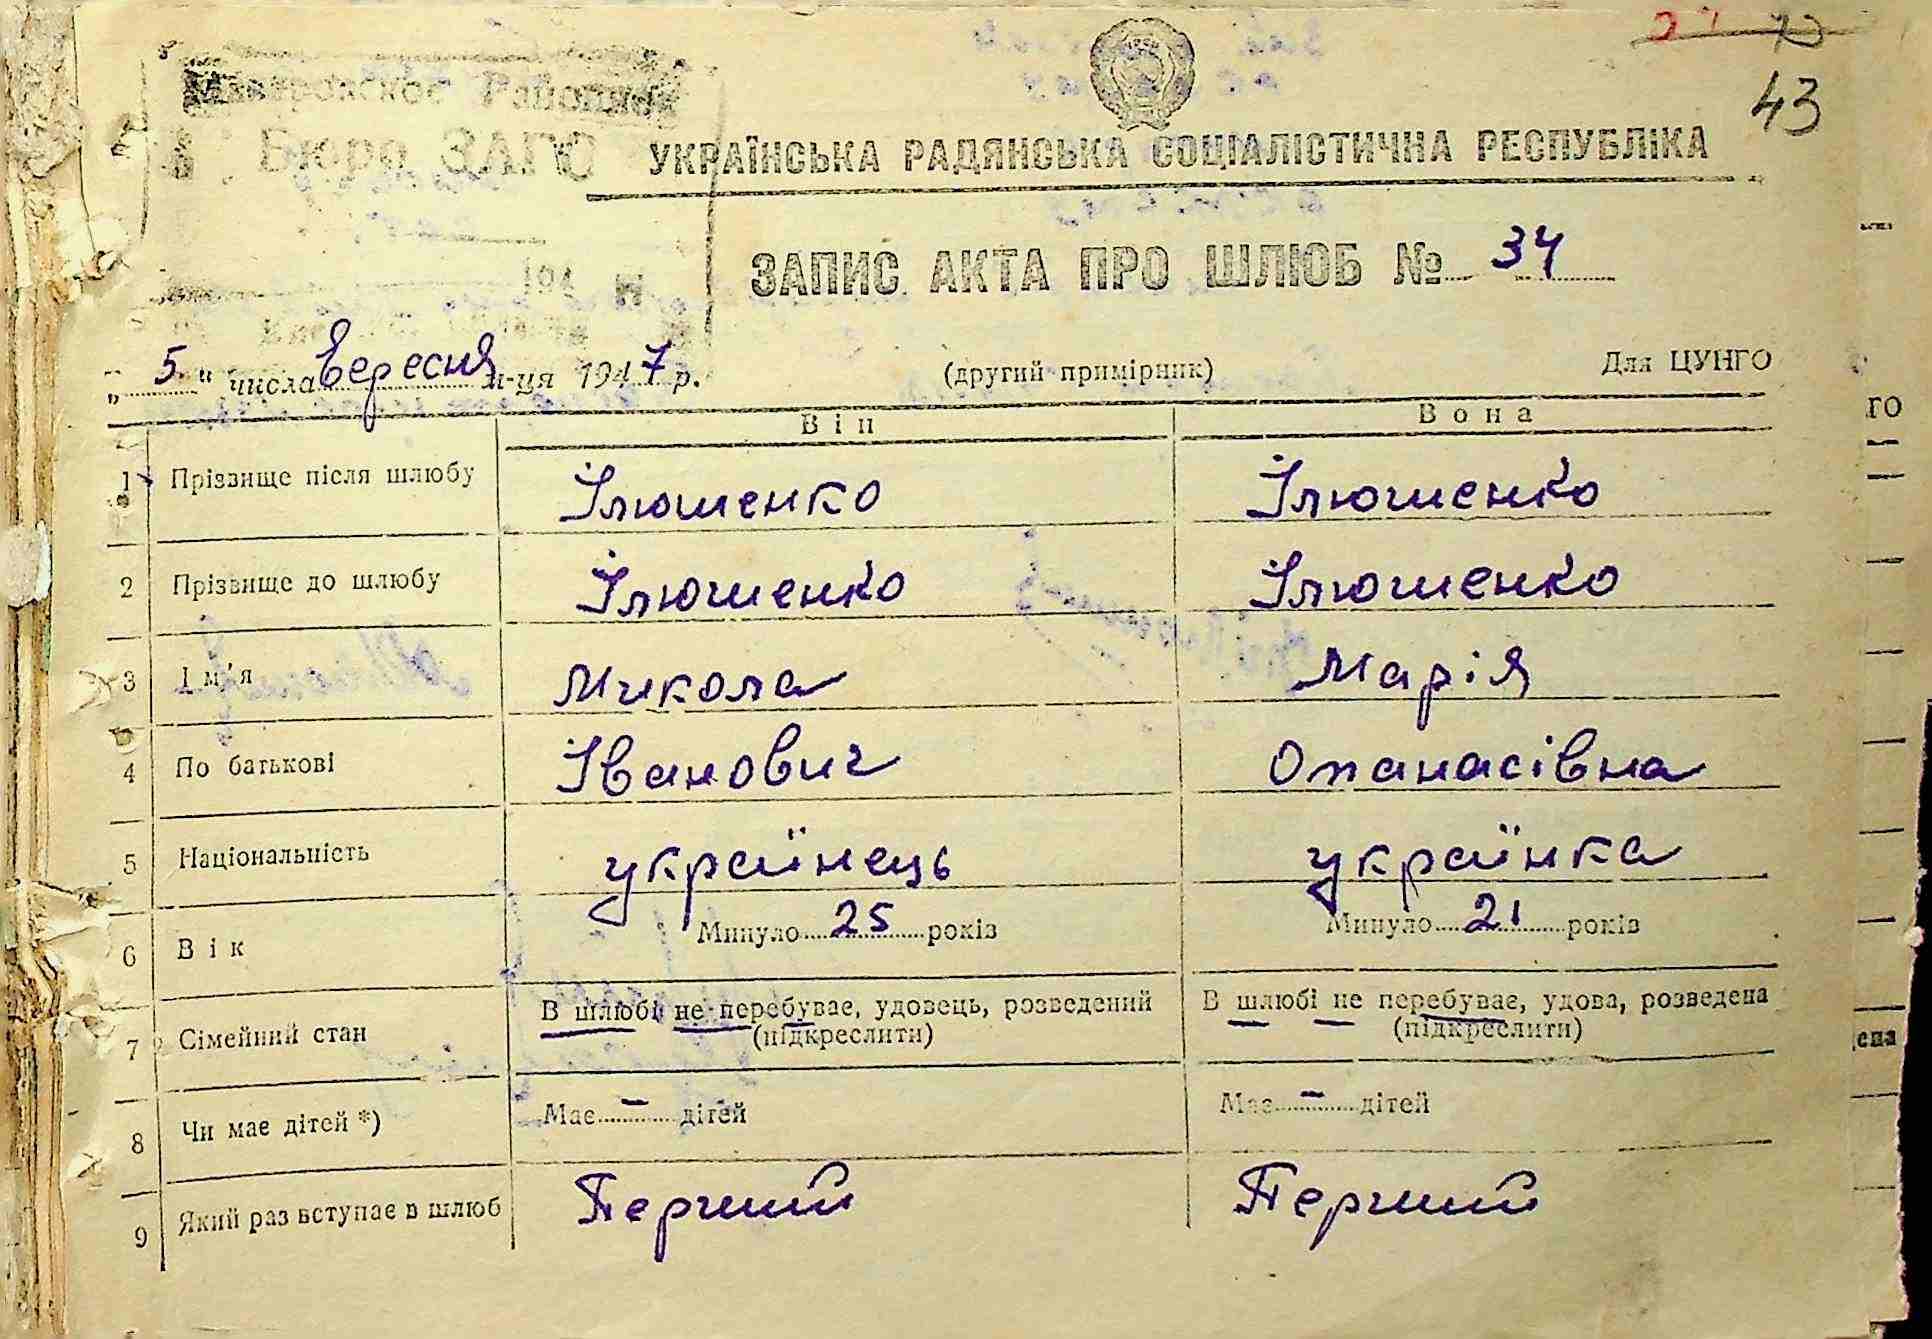 43
Бюро ЗАГС
УКРАЇНСЬКА РАДЯНСЬКА СОЦІАЛІСТИЧНА РЕСПУБЛІКА
ЗАПИС АКТА ПРО ШЛЮБ № 34
„5“ числа Вересня м-ця 1947 р. (другий примірник) Для ЦУНГО
Він Вона
1 Прізвище після шлюбу Ілюшенко Ілюшенко
2 Прізвище до шлюбу Ілюшенко Ілюшенко
3 Ім'я Микола Марія
4 По батькові Іванович Опанасівна
5 Національність українець українка
6 Вік Минуло 25 років Минуло 21 років
7 Сімейний стан В шлюбі не перебуває, удовець, розведений В шлюбі не перебуває, удова, розведена
(підкреслити) (підкреслити)
8 Чи має дітей *) Має – дітей Має – дітей
9 Який раз вступає в шлюб Перший Перший